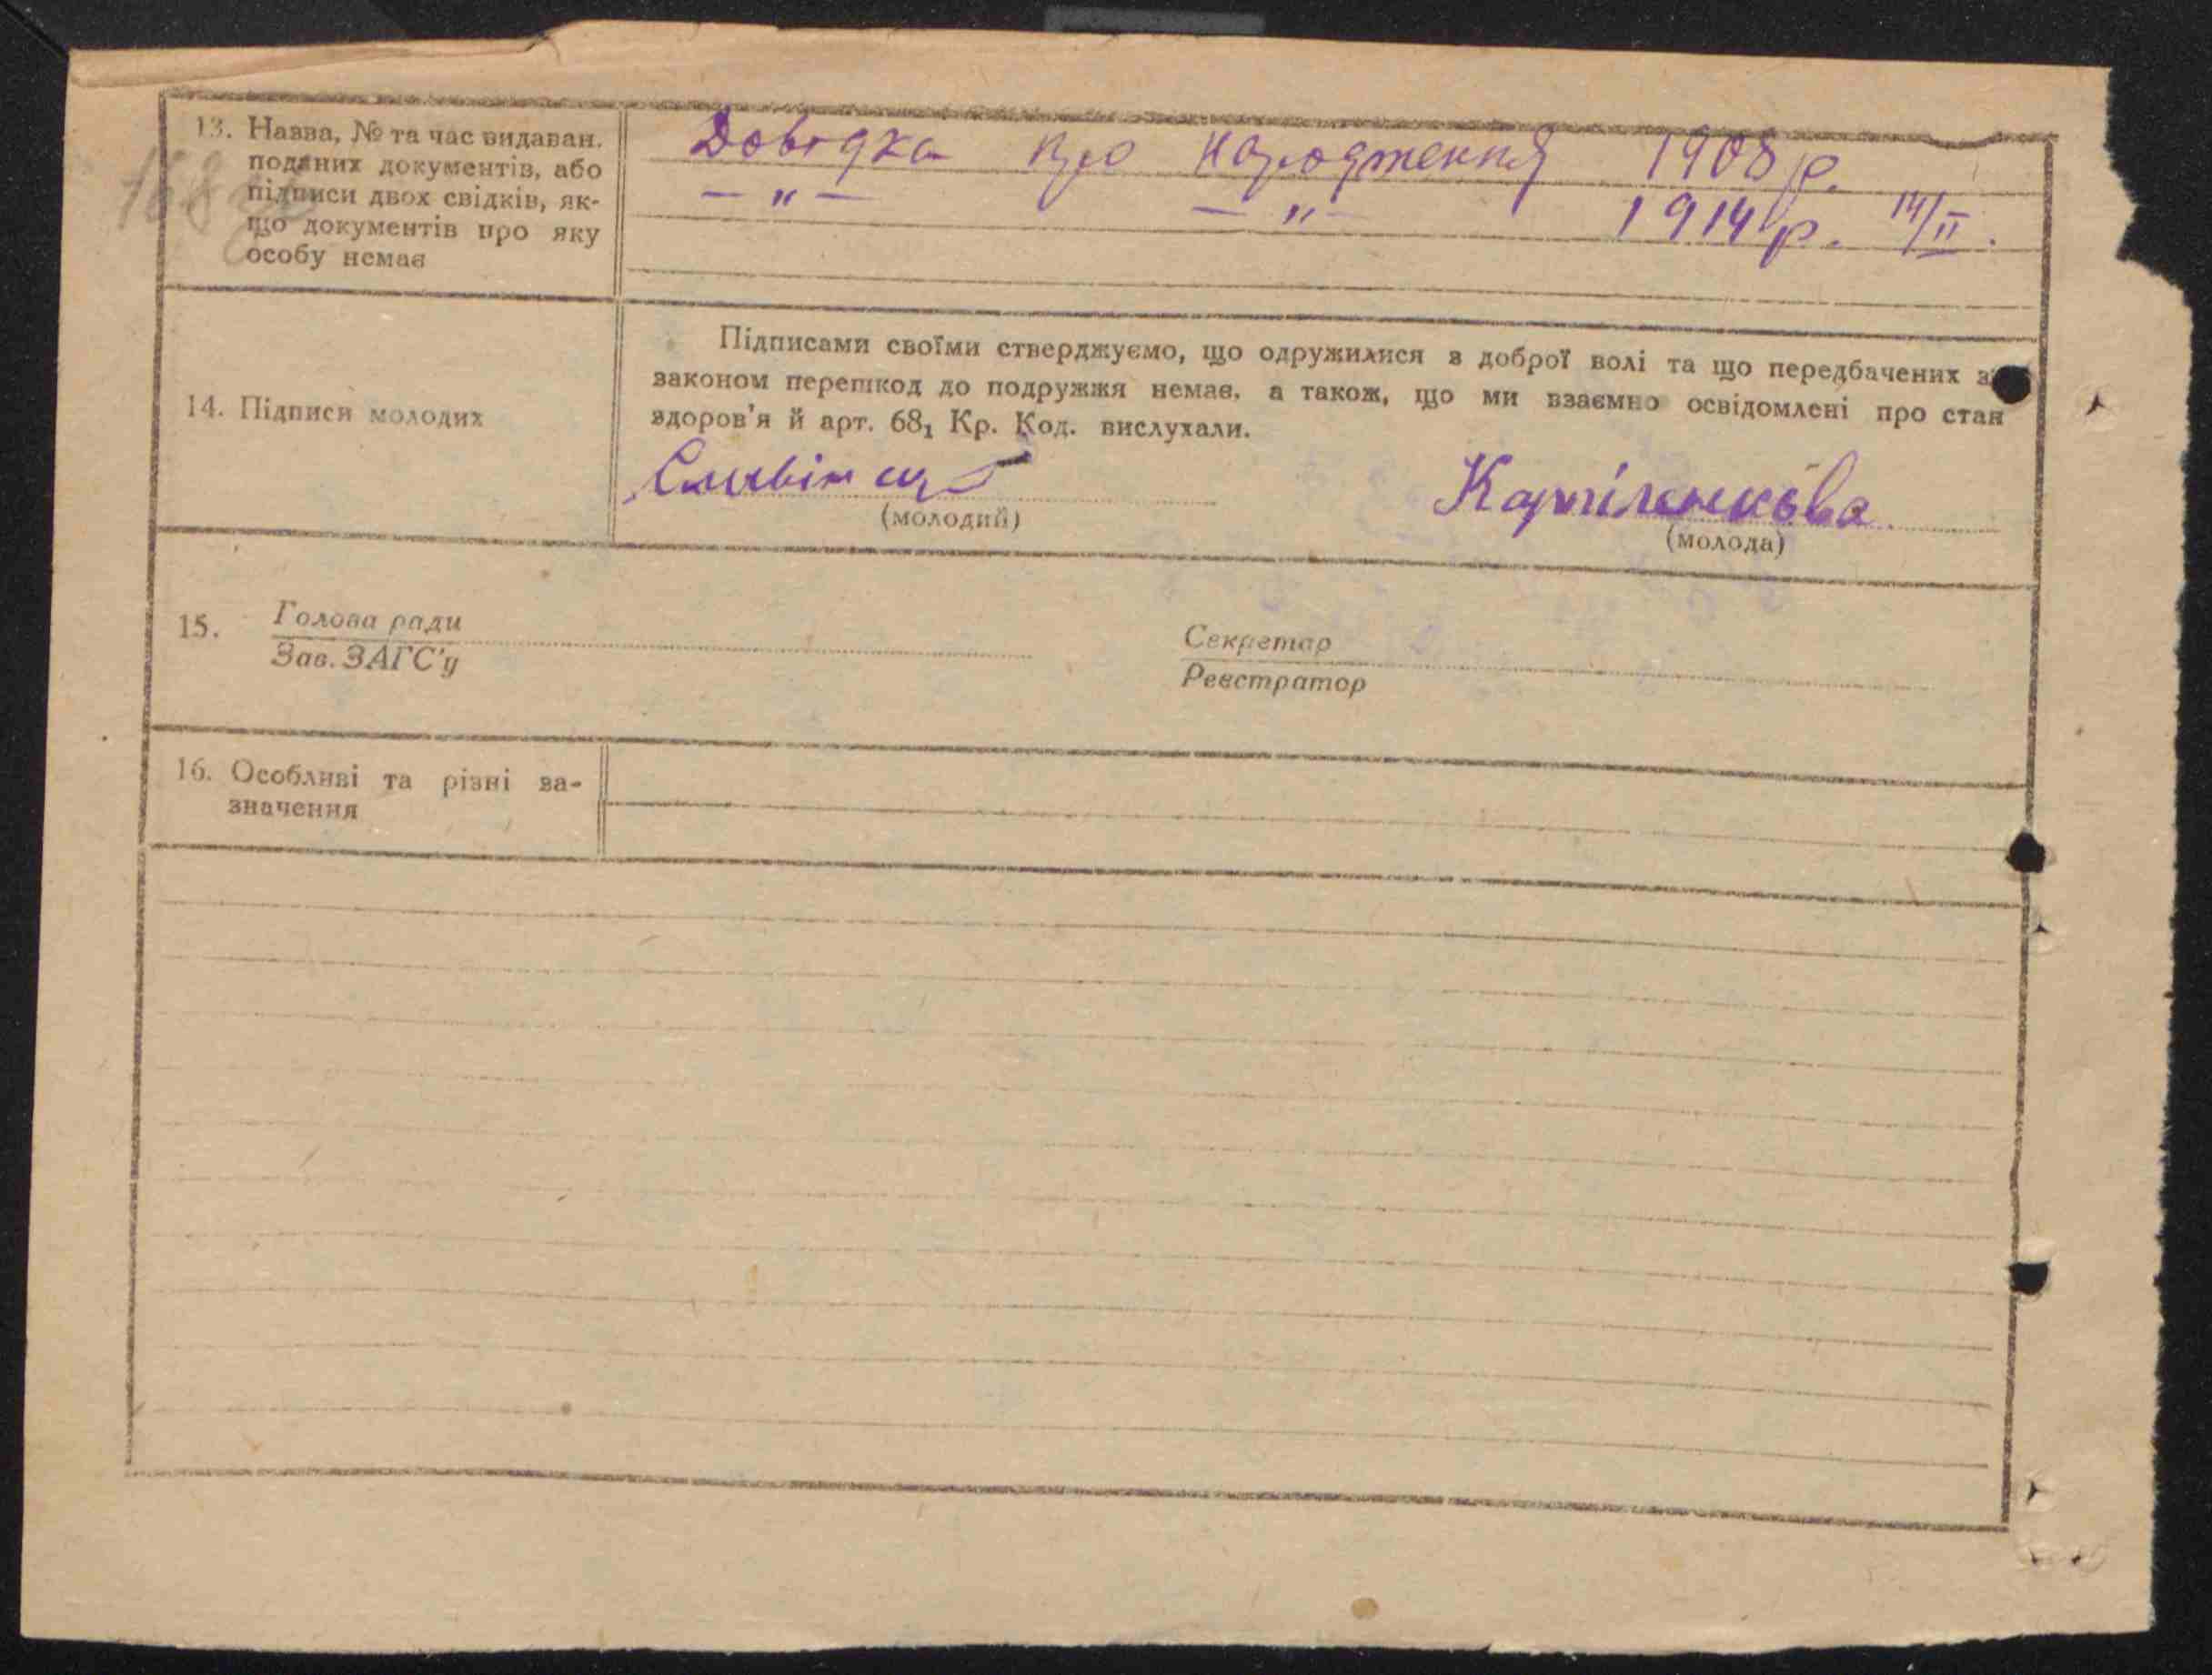 13. Назва, № та час видаван.
поданих документів, або
підписи двох свідків, як-
що документів про яку
особу немає
Довідка про народження 1908 р.
— „ — — „ — 1914 р. 14/II.
14. Підписи молодих
Підписами своїми стверджуємо, що одружилися з доброї волі та що передбачених
законом перешкод до подружжя немає, а також, що ми взаємно освідомлені про стан
здоров'я й арт. 68₁ Кр. Код. вислухали.
(молодий)
(молода)
15. Голова ради
Зав. ЗАГС'у
Секретар
Реєстратор
16. Особливі та різні за-
значення